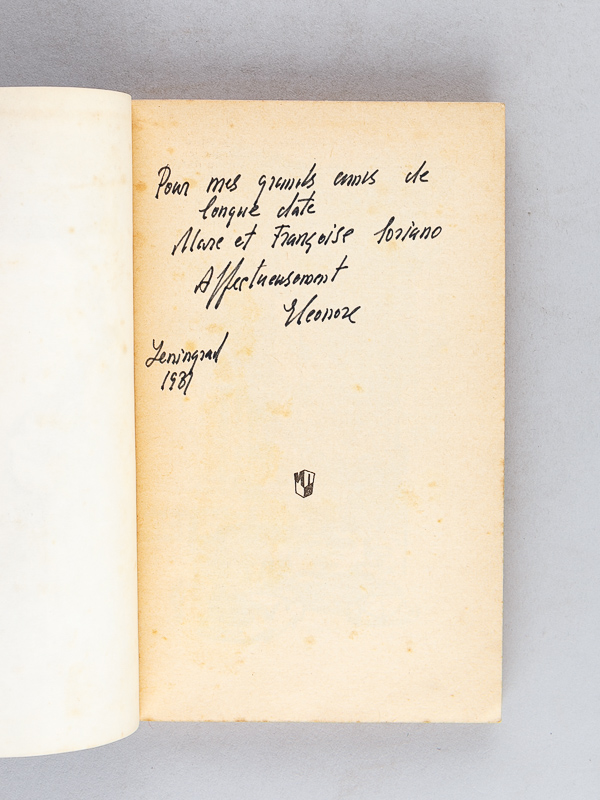 Pour mes grands amis de
longue date
Marc et Françoise Soriano
Affectueusement
Eleonore
Leningrad
1981